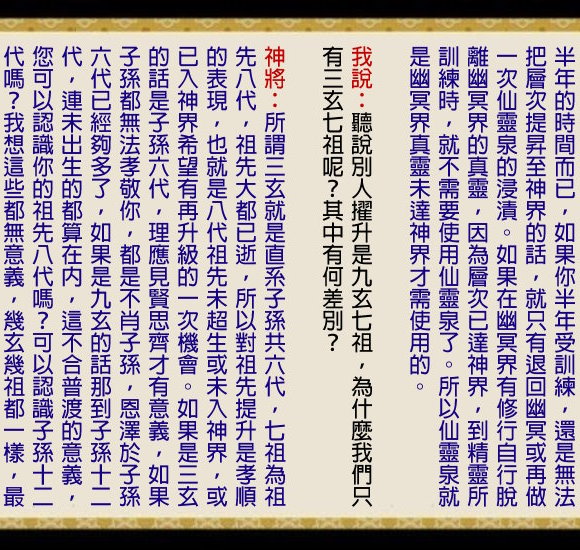 半年的時間而已，如果你半年受訓練，還是無法
把層次提昇至神界的話，就只有退回幽冥或再做
一次仙靈泉的浸漬。如果在幽冥界有修行自行脫
離幽冥界的真靈，因為層次已達神界，到精靈所
訓練時，就不需要使用仙靈泉了。所以仙靈泉就
是幽冥界真靈未達神界才需使用的。
我說：聽說別人擢升是九玄七祖，為什麼我們只
有三玄七祖呢？其中有何差別？
神將：所謂三玄就是直系子孫共六代，七祖為祖
先八代，祖先大都已逝，所以對祖先提升是孝順
的表現，也就是八代祖先未超生或未入神界，或
已入神界希望有再升級的一次機會。如果是三玄
的話是子孫六代，理應見賢思齊才有意義，如果
子孫都無法孝敬你，都是不肖子孫，恩澤於子孫
六代已經夠多了，如果是九玄的話那到子孫十二
代，連未出生的都算在内，這不合普渡的意義，
您可以認識你的祖先八代嗎？可以認識子孫十二
代嗎？我想這些都無意義，幾玄幾祖都一樣，最